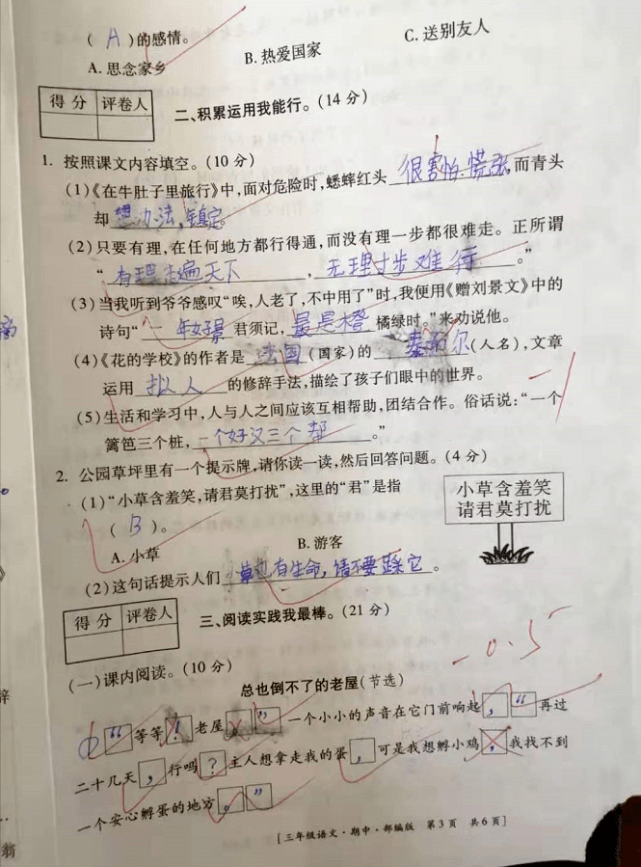 ( A )的感情。
A. 思念家乡 B. 热爱国家 C. 送别友人
得分 评卷人
二、积累运用我能行。(14 分)
1. 按照课文内容填空。(10 分)
(1)《在牛肚子里旅行》中,面对危险时,蟋蟀红头 很害怕.慌张,而青头
却 想办法,镇定。
(2)只要有理,在任何地方都行得通,而没有理一步都很难走。正所谓
“ 有理走遍天下 , 无理寸步难行 。”
(3)当我听到爷爷感叹“唉,人老了,不中用了”时,我便用《赠刘景文》中的
诗句“ 一年好景 君须记, 最是橙 橘绿时。”来劝说他。
(4)《花的学校》的作者是 法国 (国家)的 泰戈尔 (人名),文章
运用 拟人 的修辞手法,描绘了孩子们眼中的世界。
(5)生活和学习中,人与人之间应该互相帮助,团结合作。俗话说:“一个
篱笆三个桩, 一个好汉三个帮 。”
-1
2. 公园草坪里有一个提示牌,请你读一读,然后回答问题。(4 分)
(1)“小草含羞笑,请君莫打扰”,这里的“君”是指
( B )。
A. 小草 B. 游客
小草含羞笑
请君莫打扰
(2)这句话提示人们 草也有生命,请不要踩它 。
得分 评卷人
三、阅读实践我最棒。(21 分)
-0.5
(一)课内阅读。(10 分)
总也倒不了的老屋(节选)
① “ 等等 ! 老屋 ” 一个小小的声音在它门前响起 , “ 再过
二十几天 , 行吗 ? 主人想拿走我的蛋 , 可是我想孵小鸡 , 我找不到
一个安心孵蛋的地方 。 ”
[三年级语文·期中·部编版 第3页 共6页]